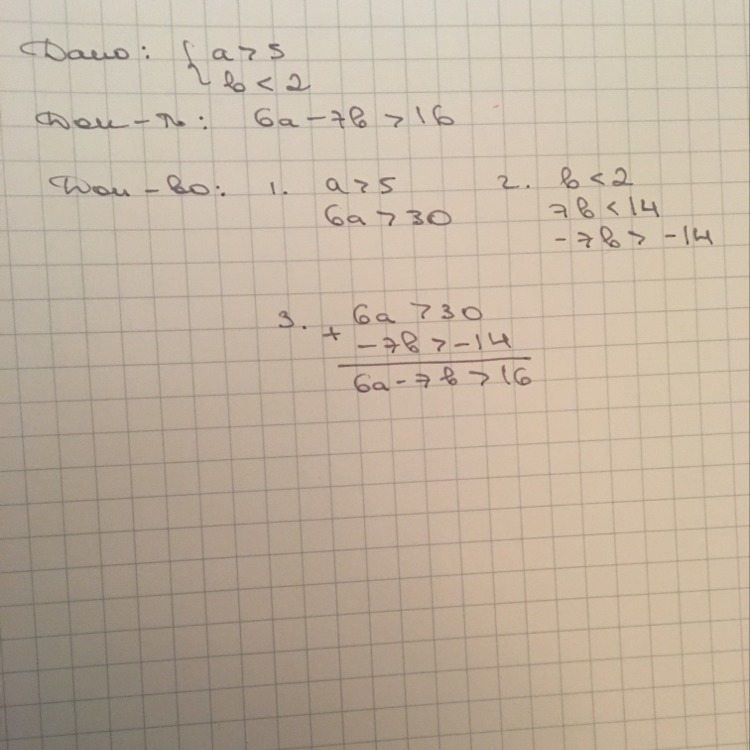 Дано: { a > 5
b < 2
Док-ть: 6a - 7b > 16
Док-во: 1. a > 5
6a > 30
2. b < 2
7b < 14
-7b > -14
3. 6a > 30
+ -7b > -14
6a - 7b > 16